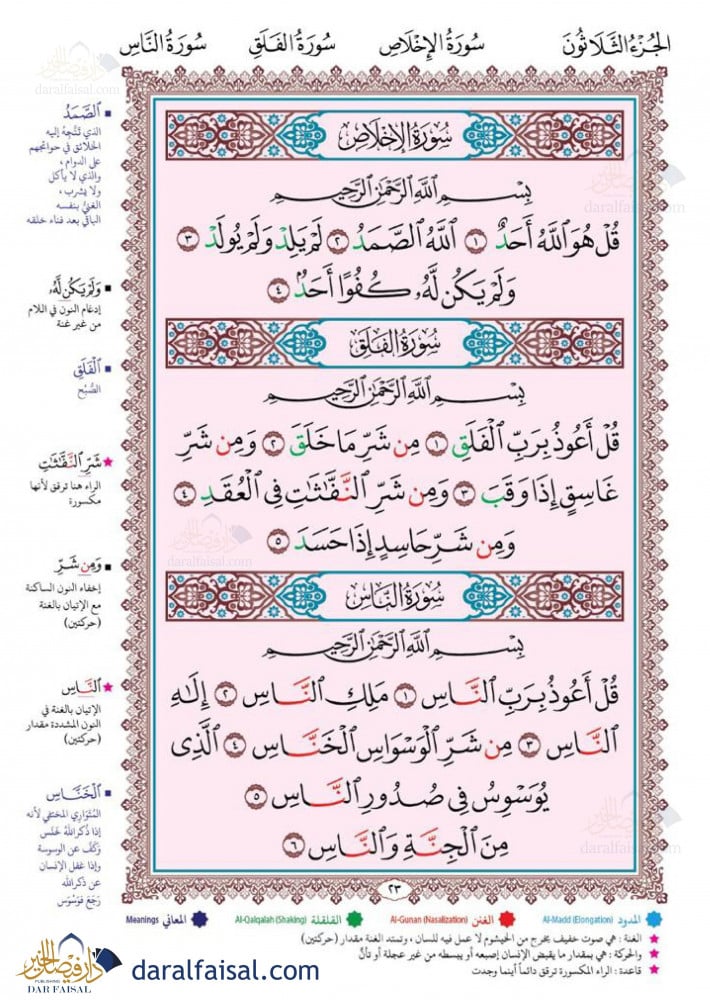 الجزء الثلاثون
سورة الإخلاص
سورة الفلق
سورة الناس
سُورَةُ الإِخْلَاصِ
بِسْمِ ٱللَّهِ ٱلرَّحْمَٰنِ ٱلرَّحِيمِ
قُلْ هُوَ ٱللَّهُ أَحَدٌ ١ ٱللَّهُ ٱلصَّمَدُ ٢ لَمْ يَلِدْ وَلَمْ يُولَدْ ٣
وَلَمْ يَكُن لَّهُۥ كُفُوًا أَحَدٌۢ ٤
سُورَةُ الفَلَقِ
بِسْمِ ٱللَّهِ ٱلرَّحْمَٰنِ ٱلرَّحِيمِ
قُلْ أَعُوذُ بِرَبِّ ٱلْفَلَقِ ١ مِن شَرِّ مَا خَلَقَ ٢ وَمِن شَرِّ
غَاسِقٍ إِذَا وَقَبَ ٣ وَمِن شَرِّ ٱلنَّفَّٰثَٰتِ فِى ٱلْعُقَدِ ٤
وَمِن شَرِّ حَاسِدٍ إِذَا حَسَدَ ٥
سُورَةُ النَّاسِ
بِسْمِ ٱللَّهِ ٱلرَّحْمَٰنِ ٱلرَّحِيمِ
قُلْ أَعُوذُ بِرَبِّ ٱلنَّاسِ ١ مَلِكِ ٱلنَّاسِ ٢ إِلَٰهِ
ٱلنَّاسِ ٣ مِن شَرِّ ٱلْوَسْوَاسِ ٱلْخَنَّاسِ ٤ ٱلَّذِى
يُوَسْوِسُ فِى صُدُورِ ٱلنَّاسِ ٥
مِنَ ٱلْجِنَّةِ وَٱلنَّاسِ ٦
٢٣
ٱلصَّمَدُ
الذي تتَّجِهُ إليه
الخلائق في حوائجهم
على الدوام ،
والذي لا يأكل
ولا يشرب ،
الغنيُّ بنفسه
الباقي بعد فناء خلقه
وَلَمْ يَكُن لَّهُۥ
إدغام النون في اللام
من غير غنة
ٱلْفَلَقِ
الصُّبْح
شَرِّ ٱلنَّفَّٰثَٰتِ
الراء هنا ترقق لأنها
مكسورة
وَمِن شَرِّ
إخفاء النون الساكنة
مع الإتيان بالغنة
(حركتين)
ٱلنَّاسِ
الإتيان بالغنة في
النون المشددة مقدار
(حركتين)
ٱلْخَنَّاسِ
المُتَواري المختفي لأنه
إذا ذُكر اللهُ خَنَس
وَكَفَّ عن الوسوسة
وإذا غفل الإنسان
عن ذكر الله
رَجَعَ فَوَسْوَسَ
المدود Al-Madd (Elongation) الغنن Al-Gunan (Nasalization) القلقلة Al-Qalqalah (Shaking) المعاني Meanings
الغنة : هي صوت خفيف يخرج من الخيشوم لا عمل فيه للسان ، وتمتد الغنة مقدار (حركتين)
والحركة : هي بمقدار ما يقبض الإنسان إصبعه أو يبسطه من غير عجلة أو تأنٍّ
قاعدة : الراء المكسورة ترقق دائماً أينما وجدت
دار فيصل الخير
PUBLISHING
DAR FAISAL
daralfaisal.com